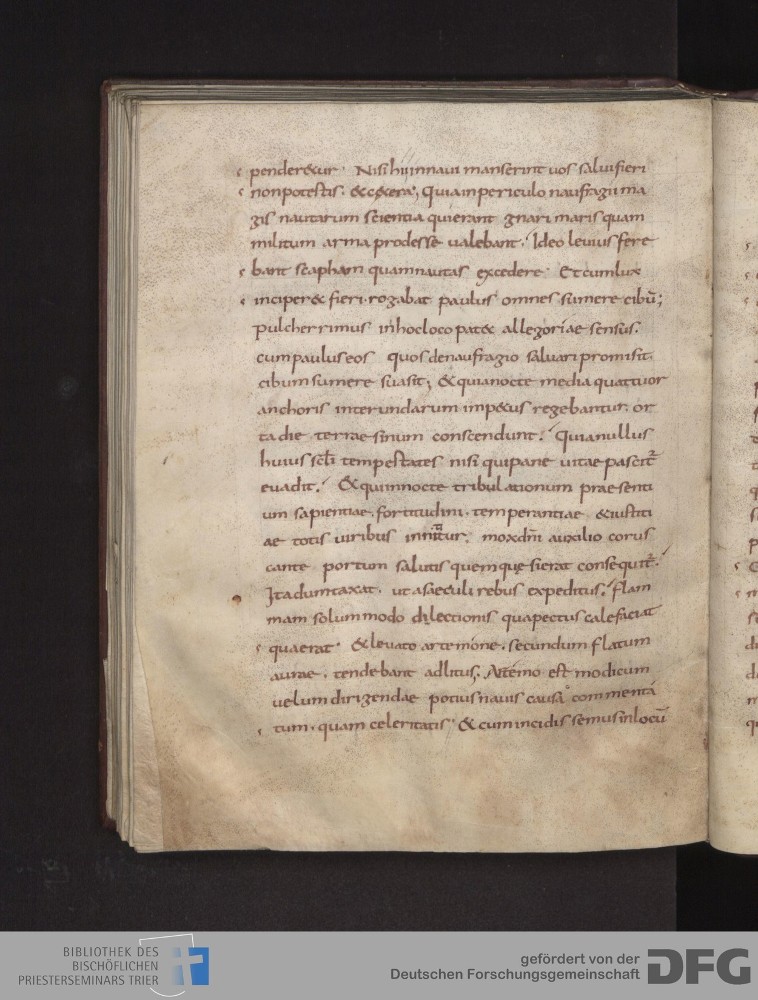 penderetur. Nisi hi innaui manserint uos salui fieri
non potestis. & cęcera; Quia in periculo naufragii ma
gis nautarum scientia qui erant gnari maris quam
militum arma prodesse ualebant. Ideo leuius fere
bant scapham quam nautas excedere. Et cum lux
inciper& fieri. rogabat paulus omnes sumere cibū;
Pulcherrimus in hoc loco pat& allegoriae sensus.
cum paulus eos quos de naufragio saluari promisit.
cibum sumere suasit; & quia nocte media quattuor
anchoris inter undarum imp&us regebantur. or
ta die terrae sinum conscendunt. Quia nullus
huius scłi tempestates nisi qui pane uitae pascit̄
euadit. & qui in nocte tribulationum praesenti
um sapientiae. fortitudini. temperantiae & iustiti
ae totis uiribus innitatur. mox dn̄i auxilio corus
cante portum salutis quem quęsierat consequit̄.
Ita dumtaxat. ut a saeculi rebus expeditus. Flam
mam solum modo dilectionis qua pectus calefaciat
quaerat. & leuato artemone. secundum flatum
aurae. tendebant ad litus. Artemo est modicum
uelum dirigendae potius nauis causa commenta
tum. quam celeritatis. & cum incidissemus in locū
BIBLIOTHEK DES
BISCHÖFLICHEN
PRIESTERSEMINARS TRIER
gefördert von der
Deutschen Forschungsgemeinschaft
DFG